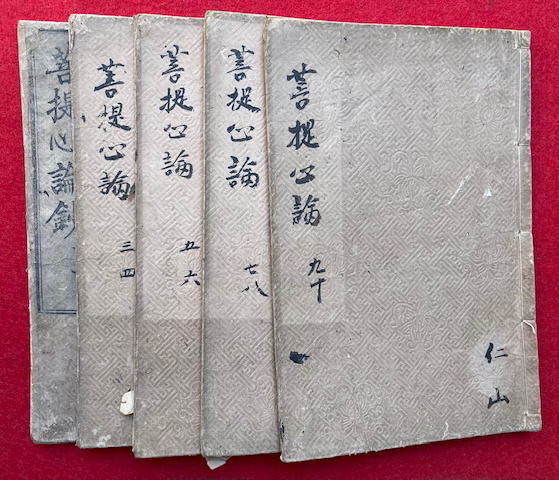 菩提心論鈔
菩提心論
三四
菩提心論
五六
菩提心論
七八
菩提心論
九十
仁山